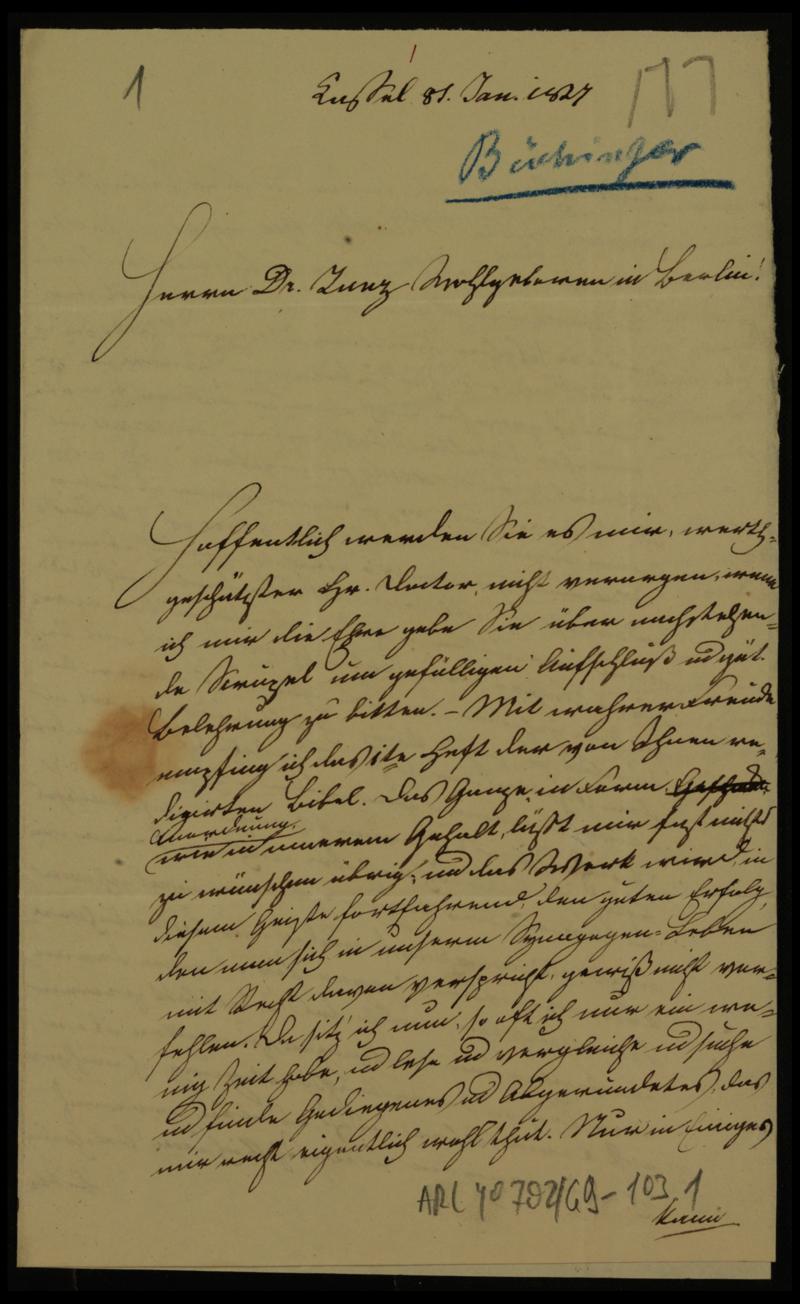 1
Cassel 31. Jan. 1837
Büchinger
Herrn Dr. Zunz Wohlgeboren in Berlin!
Hoffentlich werden Sie es mir, werth-
geschätzter Hr. Doctor, nicht verargen, wenn
ich mir die Ehre gebe Sie über nachstehen-
de Scrupel um gefälligen Aufschluß und güt.
Belehrung zu bitten. – Mit wahrer Freude
empfing ich das 1te Heft der von Ihnen re-
digirten Bibel. Das Ganze, in Form
Anordnung,
wie in innerem Gehalt, läßt mir fast nichts
zu wünschen übrig, und das Werk wird, in
diesem Geiste fortfahrend, den guten Erfolg,
den man sich in unserm Synagogen-Leben
mit Recht davon verspricht, gewiß nicht ver-
fehlen. Da sitz ich nun, so oft ich nur ein we-
nig Zeit habe, und lese und vergleiche und suche
und finde Gediegenes und Abgerundetes, das
mir recht eigentlich wohl thut. Nur in Einiges
kann